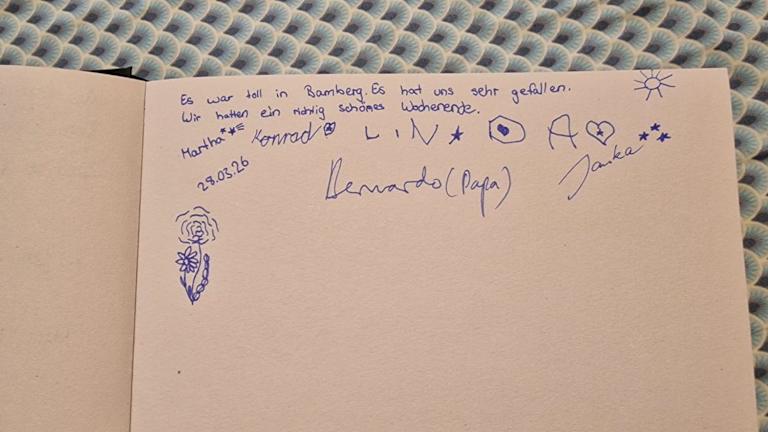 Es war toll in Bamberg. Es hat uns sehr gefallen.
Wir hatten ein richtig schönes Wochenende.
Martha Konrad LINDA
28.03.26
Bernardo (Papa) Janka